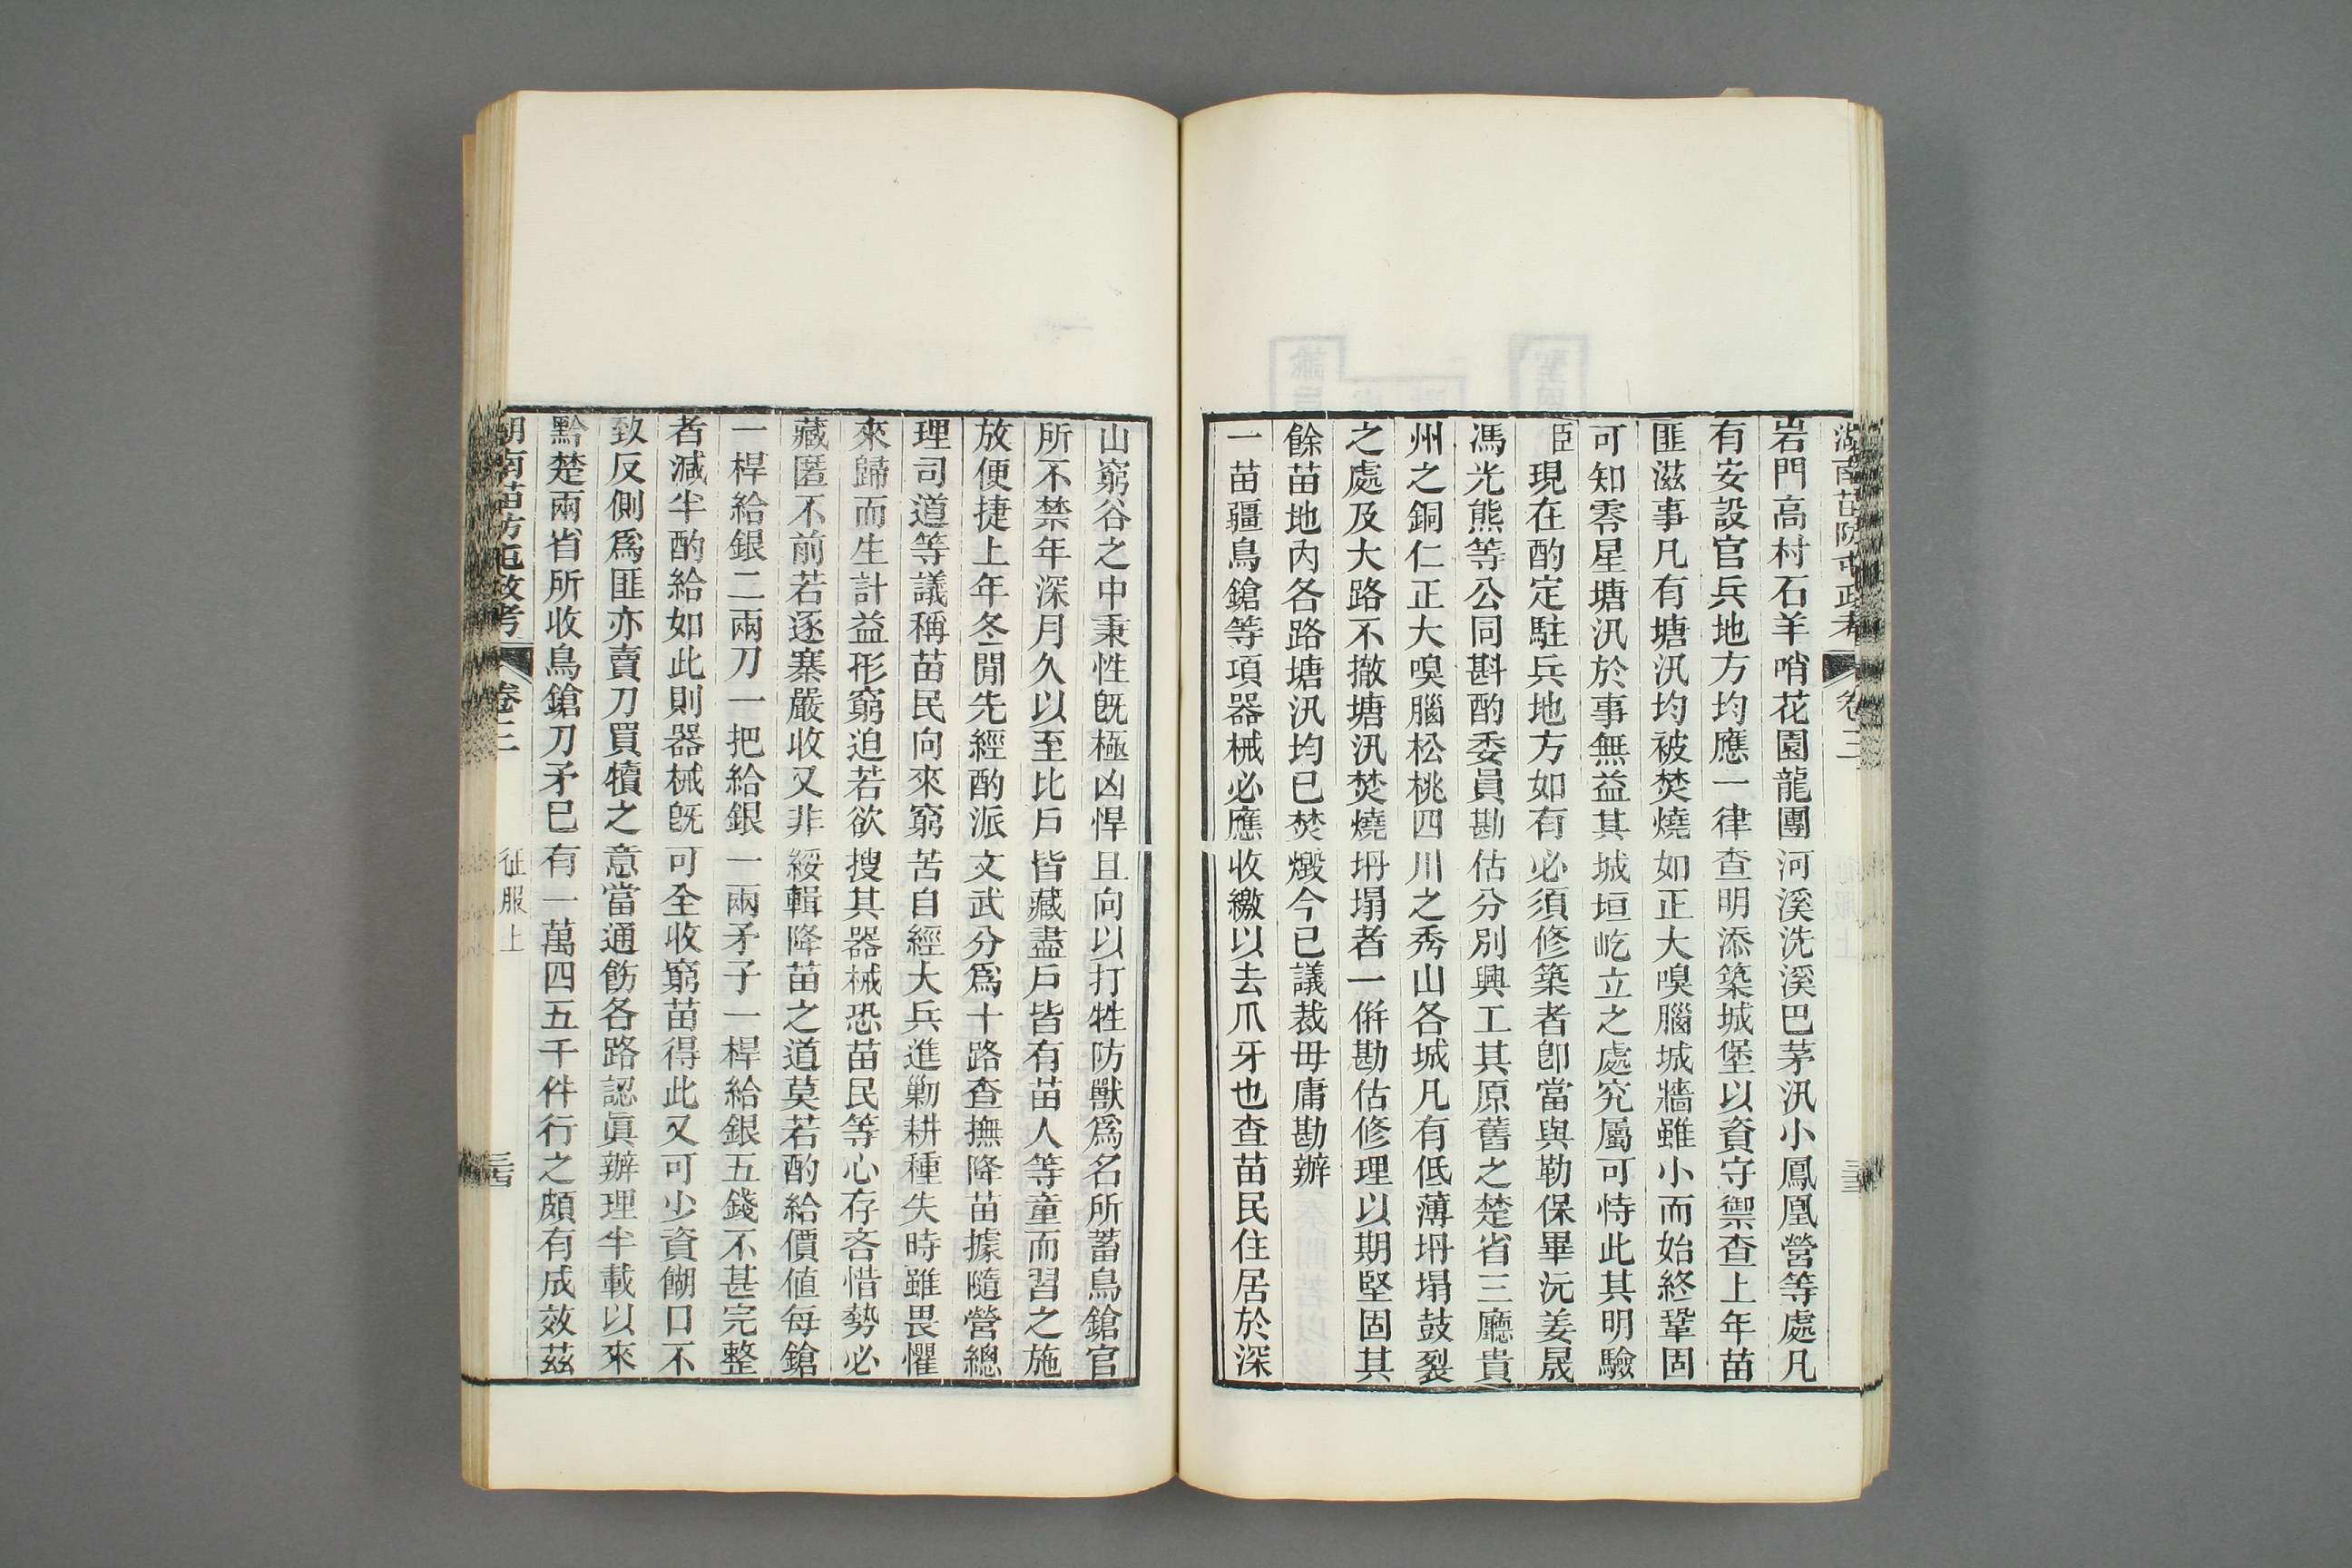 湖南苗防屯政考 卷三
岩門高村石羊哨花園龍團河溪洗溪巴茅汛小鳳凰營等處凡
有安設官兵地方均應一律查明添築城堡以資守禦查上年苗
匪滋事凡有塘汛均被焚燒如正大嗅腦城牆雖小而始終鞏固
可知零星塘汛於事無益其城垣屹立之處究屬可恃此其明驗
臣現在酌定駐兵地方如有必須修築者卽當與勒保畢沅姜晟
馮光熊等公同斟酌委員勘估分別興工其原舊之楚省三廳貴
州之銅仁正大嗅腦松桃四川之秀山各城凡有低薄坍塌鼓裂
之處及大路不撤塘汛焚燒坍塌者一倂勘估修理以期堅固其
餘苗地內各路塘汛均已焚燬今已議裁毋庸勘辦
一苗疆鳥鎗等項器械必應收繳以去爪牙也查苗民住居於深
山窮谷之中秉性旣極凶悍且向以打牲防獸爲名所蓄鳥鎗官
所不禁年深月久以至比戶皆藏盡戶皆有苗人等童而習之施
放便捷上年冬閒先經酌派文武分爲十路查撫降苗據隨營總
理司道等議稱苗民向來窮苦自經大兵進勦耕種失時雖畏懼
來歸而生計益形窮迫若欲搜其器械恐苗民等心存吝惜勢必
藏匿不前若逐寨嚴收又非綏輯降苗之道莫若酌給價值每鎗
一桿給銀二兩刀一把給銀一兩矛子一桿給銀五錢不甚完整
者減半酌給如此則器械旣可全收窮苗得此又可少資餬口不
致反側爲匪亦賣刀買犢之意當通飭各路認眞辦理半載以來
黔楚兩省所收鳥鎗刀矛已有一萬四五千件行之頗有成效茲
湖南苗防屯政考 卷三 征服上 三四